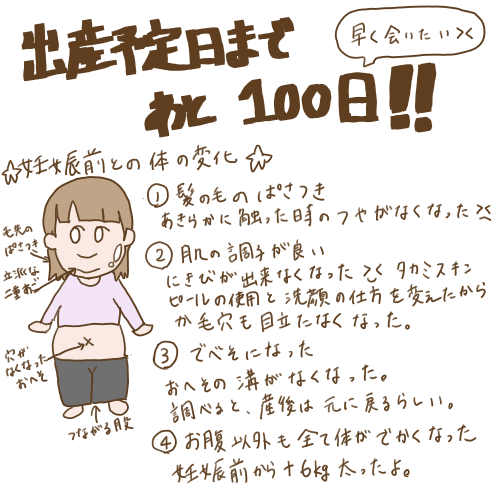 出産予定日まで
あと 100日!!
早く会いたい><
☆妊娠前との体の変化☆
① 髪の毛のぱさつき
あきらかに触った時のつやがなくなった><
② 肌の調子が良い
にきびが出来なくなった>< タカミスキン
ピールの使用と洗顔の仕方を変えたから
か毛穴も目立たなくなった。
③ でべそになった
おへその溝がなくなった。
調べると、産後は元に戻るらしい。
④ お腹以外も全て体がでかくなった
妊娠前から+6kg太ったよ。
毛先の
ぱさつき
立派な
二重あご
穴が
なくなった
おへそ
つながる股